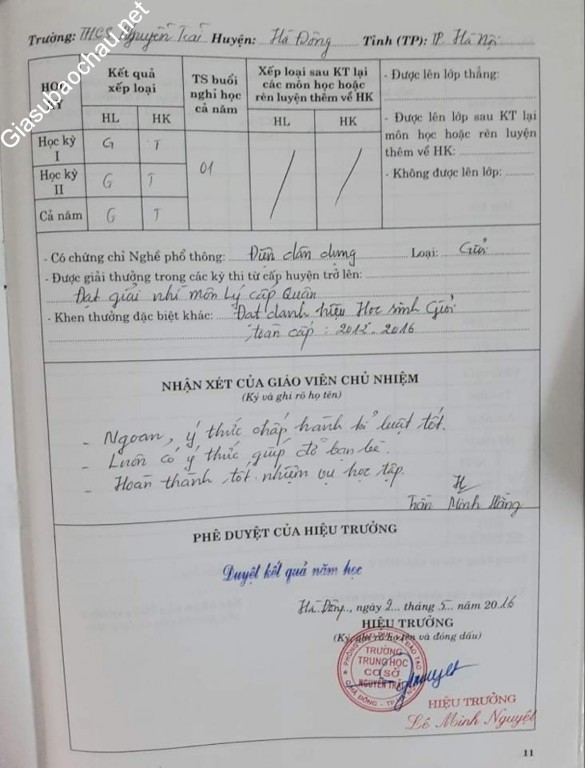 Giasubaochau.net
Trường: THCS Nguyễn Trãi Huyện: Hà Đông Tỉnh (TP): TP. Hà Nội
HỌC KỲ
Kết quả xếp loại
HL HK
TS buổi nghỉ học cả năm
Xếp loại sau KT lại các môn học hoặc rèn luyện thêm về HK
HL HK
- Được lên lớp thẳng:
- Được lên lớp sau KT lại
môn học hoặc rèn luyện
thêm về HK:
- Không được lên lớp:
Học kỳ I G T
01
Học kỳ II G T
Cả năm G T
- Có chứng chỉ Nghề phổ thông: Điện dân dụng Loại: Giỏi
- Được giải thưởng trong các kỳ thi từ cấp huyện trở lên:
Đạt giải nhì môn Lý cấp Quận
- Khen thưởng đặc biệt khác: Đạt danh hiệu Học sinh Giỏi
toàn cấp : 2012-2016
NHẬN XÉT CỦA GIÁO VIÊN CHỦ NHIỆM
(Ký và ghi rõ họ tên)
- Ngoan, ý thức chấp hành kỉ luật tốt.
- Luôn có ý thức giúp đỡ bạn bè.
- Hoàn thành tốt nhiệm vụ học tập.
Trần Minh Hằng
PHÊ DUYỆT CỦA HIỆU TRƯỞNG
Duyệt kết quả năm học
Hà Đông, ngày 2 tháng 5 năm 2016
HIỆU TRƯỞNG
(Ký, ghi rõ họ tên và đóng dấu)
TRƯỜNG
TRUNG HỌC
CƠ SỞ
NGUYỄN TRÃI
HIỆU TRƯỞNG
Lê Minh Nguyệt
11